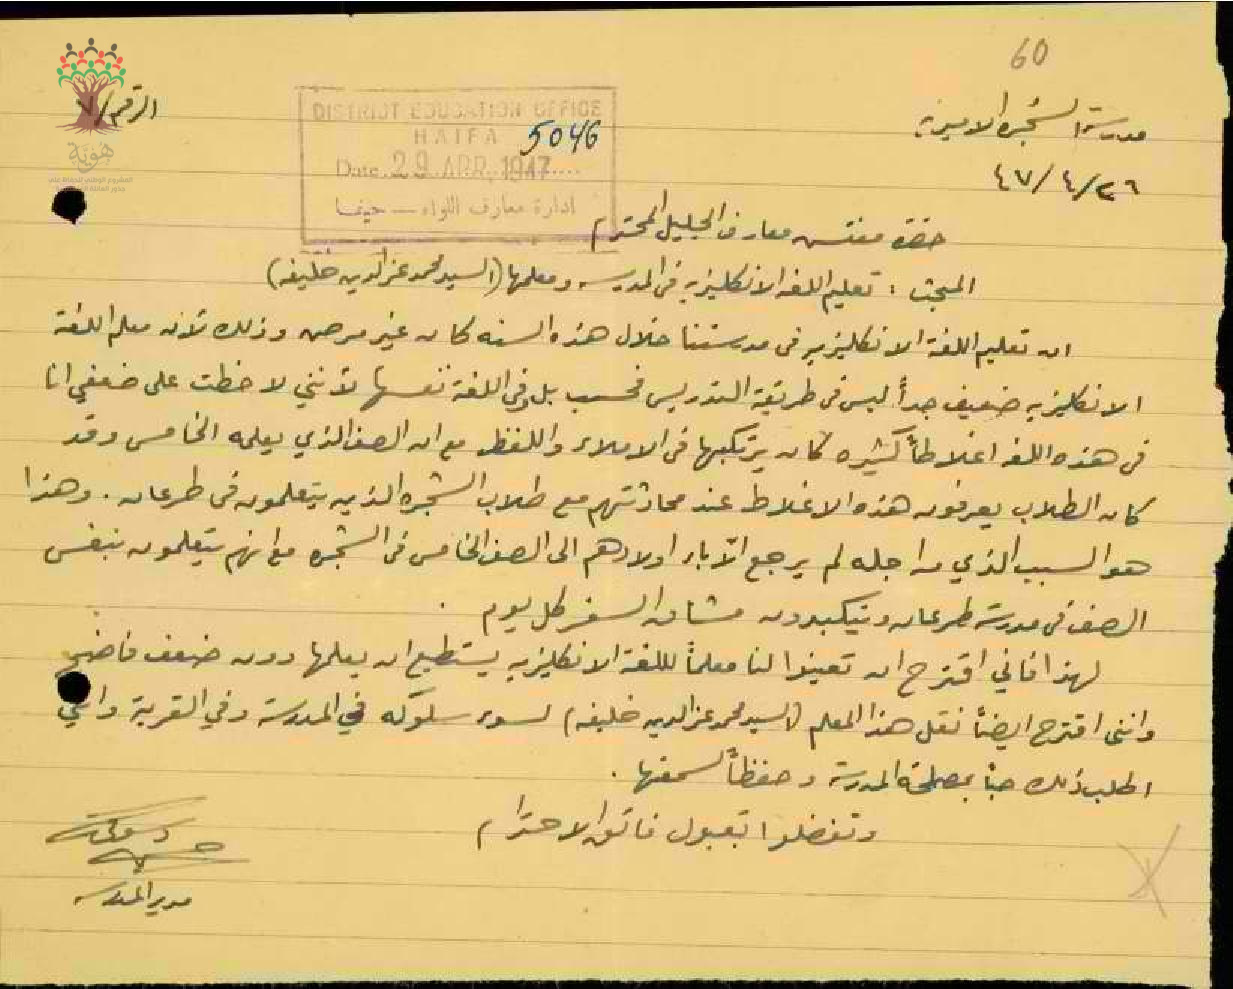 60
مدرسة الشجره الاميرية
الرقم/٧
٤٧/٤/٢٦
DISTRICT EDUCATION OFFICE
HAIFA
5046
Date 29 APR. 1947
ادارة معارف اللواء — حيفا
هوية
حضرة مفتش معارف الجليل المحترم
المبحث : تعليم اللغة الانكليزية في المدرسه ومعلمها (السيد محمد عز الدين خليفه)
ان تعليم اللغة الانكليزيه في مدرستنا خلال هذه السنه كان غير مرض وذلك لأن معلم اللغة
الانكليزيه ضعيف جداً ليس في طريقة التدريس فحسب بل في اللغة نفسها لأنني لاحظت على ضعفي انا
في هذه اللغه اغلاطاً كثيره كان يرتكبها في الاملاء واللفظ مع ان الصف الذي يعلمه الخامس وقد
كان الطلاب يعرفون هذه الاغلاط عند محادثتهم مع طلاب الشجره الذين يتعلمون في طرعان . وهذا
هو السبب الذي من اجله لم يرجع الآباء اولادهم الى الصف الخامس في الشجره مع انهم يتعلمون بنفس
الصف في مدرسة طرعان ويتكبدون مشاق السفر كل يوم .
لهذا فاني اقترح ان تعينوا لنا معلماً للغة الانكليزيه يستطيع ان يعلمها دون ضعف فاضح
وانني اقترح ايضاً نقل هذا المعلم (السيد محمد عز الدين خليفه) لسوء سلوكه في المدرسة وفي القرية وانني
اطلب ذلك حباً بمصلحة المدرسة وحفظاً لسمعتها .
وتفضلوا بقبول فائق الاحترام
مدير المدرسه